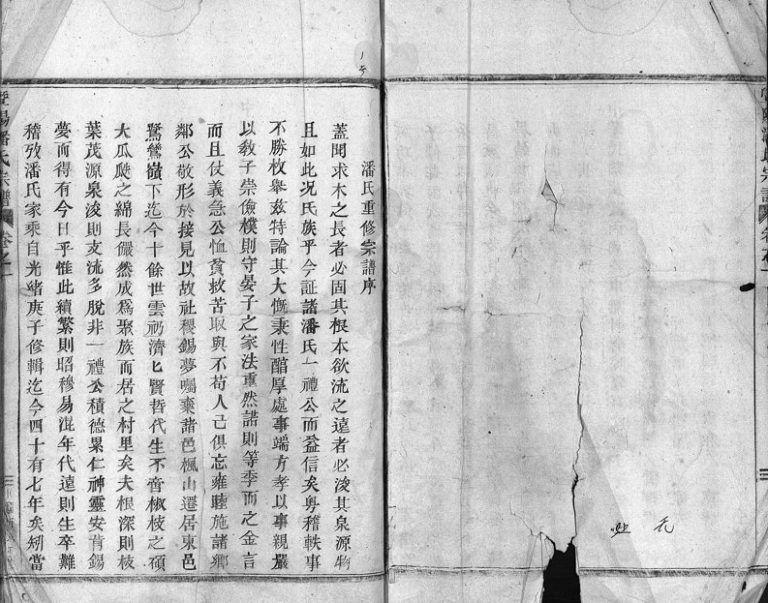 潘氏重修宗譜序
蓋聞求木之長者必固其根本欲流之遠者必浚其泉源物
且如此况氏族乎今証諸潘氏一禮公而益信矣粤稽軼事
不勝枚舉兹特論其大慨秉性醕厚處事端方孝以事親嚴
以敎子崇儉樸則守晏子之家法重然諾則等季布之金言
而且仗義急公恤貧救苦取與不苟人己俱忘雍睦施諸鄉
鄰公敬形於接見以故社稷錫夢囑棄諸邑楓山遷居東邑
鷲鶯嶺下迄今十餘世雲礽濟匕賢哲代生不啻椒枝之碩
大瓜瓞之綿長儼然成爲聚族而居之村里矣夫根深則枝
葉茂源泉浚則支流多脫非一禮公積德累仁神靈安肯錫
夢而得有今日乎惟此續繁則昭穆易混年代遠則生卒難
稽攷潘氏家乘自光緒庚子修輯迄今四十有七年矣矧當
暨陽潘氏宗譜
卷之一